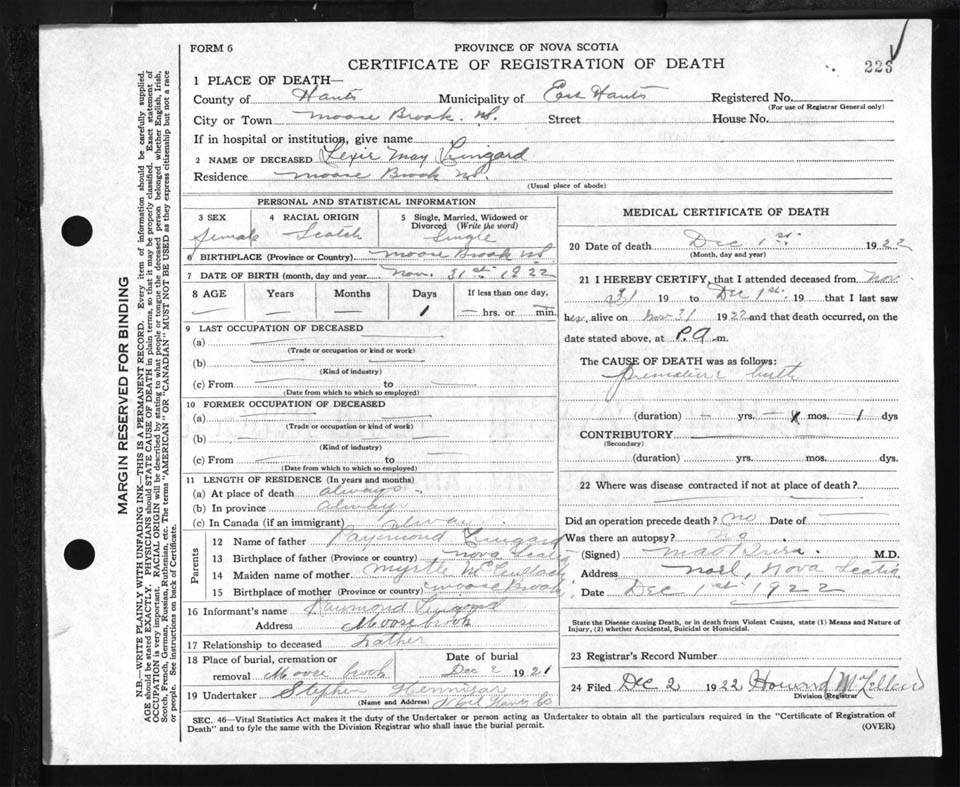 FORM 6
PROVINCE OF NOVA SCOTIA
CERTIFICATE OF REGISTRATION OF DEATH
223
1 PLACE OF DEATH—
County of Hants Municipality of East Hants Registered No.
(For use of Registrar General only)
City or Town Moose Brook. NS. Street House No.
If in hospital or institution, give name
2 NAME OF DECEASED Lexie May Lingard
Residence Moose Brook NS.
(Usual place of abode)
PERSONAL AND STATISTICAL INFORMATION
3 SEX 4 RACIAL ORIGIN 5 Single, Married, Widowed or Divorced (Write the word)
Female Scotch Single
6 BIRTHPLACE (Province or Country) Moose Brook NS
7 DATE OF BIRTH (month, day and year) Nov. 31st 1922
8 AGE Years Months Days If less than one day,
— — — 1 — hrs. or — min.
9 LAST OCCUPATION OF DECEASED
(a)
(Trade or occupation or kind or work)
(b)
(Kind of industry)
(c) From to
(Date from which to which so employed)
10 FORMER OCCUPATION OF DECEASED
(a)
(Trade or occupation or kind of work)
(b)
(Kind of industry)
(c) From to
(Date from which to which so employed)
11 LENGTH OF RESIDENCE (In years and months)
(a) At place of death always
(b) In province always
(c) In Canada (if an immigrant) alway
Parents
12 Name of father Raymond Lingard
13 Birthplace of father (Province or country) Nova Scotia
14 Maiden name of mother Myrtle McCullock
15 Birthplace of mother (Province or country) Moose Brook
16 Informant's name Raymond Lingard
Address Moose brook
17 Relationship to deceased Father
18 Place of burial, cremation or removal Moose brook Date of burial Dec 2 1921
19 Undertaker Stephen Hennigar
(Name and Address) Noel Hants Co
MEDICAL CERTIFICATE OF DEATH
20 Date of death Dec 1st. 1922
(Month, day and year)
21 I HEREBY CERTIFY, that I attended deceased from Nov
31 19 to Dec 1st. 19 that I last saw
her alive on Nov 31 1922 and that death occurred, on
date stated above, at m.
The CAUSE OF DEATH was as follows:
premature birth
(duration) — yrs. — mos. 1 dys
CONTRIBUTORY
(Secondary)
(duration) yrs. mos. dys.
22 Where was disease contracted if not at place of death?
Did an operation precede death? no Date of
Was there an autopsy? no
(Signed) M.D.
Address Noel, Nova Scotia
Date Dec 1st 1922
State the Disease causing Death, or in death from Violent Causes, state (1) Means and Nature of
Injury, (2) whether Accidental, Suicidal or Homicidal.
23 Registrar's Record Number
24 Filed Dec 2 1922 Howard McLellan
Division Registrar
SEC. 46—Vital Statistics Act makes it the duty of the Undertaker or person acting as Undertaker to obtain all the particulars required in the "Certificate of Registration of
Death" and to fyle the same with the Division Registrar who shall issue the burial permit. (OVER)
MARGIN RESERVED FOR BINDING
N.B.—WRITE PLAINLY WITH UNFADING INK—THIS IS A PERMANENT RECORD. Every item of information should be carefully supplied.
AGE should be stated EXACTLY. PHYSICIANS should STATE CAUSE OF DEATH in plain terms, so that it may be properly classified. Exact statement of
OCCUPATION is very important. RACIAL ORIGIN will be described by stating to what people or tongue the deceased person belonged whether English, Irish,
Scotch, French, German, Russian, Ruthenian, etc. The terms "AMERICAN" OR "CANADIAN" MUST NOT BE USED as they express citizenship but not a race
or people. See instructions on back of Certificate.